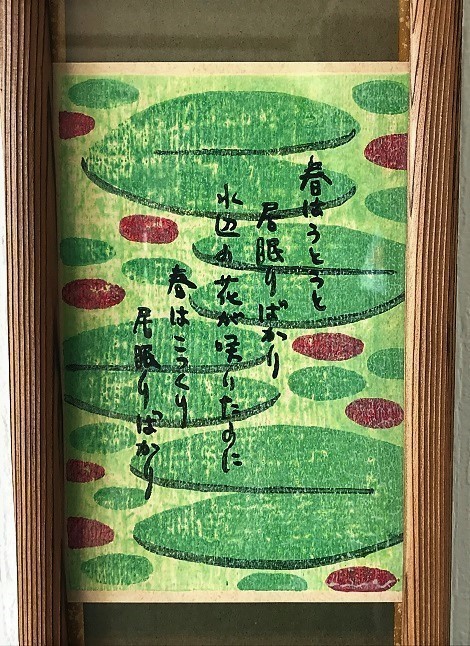 春はうとうと
居眠りばかり
水辺の花が咲いたのに
春はこっくり
居眠りばかり